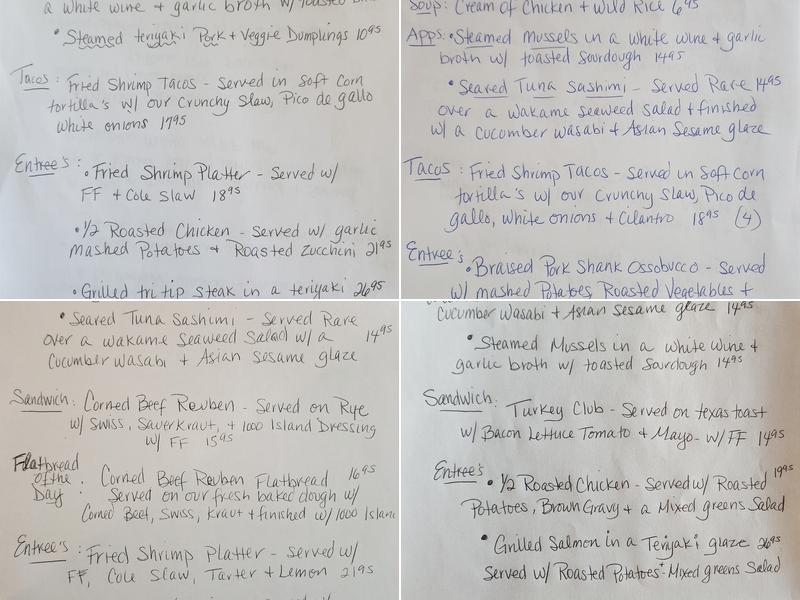 a white wine + garlic broth w/ toasted
• Steamed teriyaki Pork + Veggie Dumplings 10⁹⁵
Tacos: Fried Shrimp Tacos - Served in Soft Corn
tortilla's w/ our Crunchy Slaw, Pico de gallo
White onions 17⁹⁵
Entree's: • Fried Shrimp Platter - Served w/
FF + Cole Slaw 18⁹⁵
• 1/2 Roasted Chicken - Served w/ garlic
mashed Potatoes + Roasted Zucchini 21⁹⁵
• Grilled tri tip steak in a teriyaki 26⁹⁵
Soup: Cream of Chicken + Wild Rice 6⁹⁵
Apps: • Steamed Mussels in a white wine + garlic
broth w/ toasted Sourdough 14⁹⁵
• Seared Tuna Sashimi - Served Rare 14⁹⁵
over a wakame seaweed salad + finished
w/ a cucumber wasabi + Asian Sesame glaze
Tacos: Fried Shrimp Tacos - served in Soft Corn
tortilla's w/ our Crunchy Slaw, Pico de
gallo, White onions + Cilantro 18⁹⁵ (4)
Entree's • Braised Pork Shank Ossobucco - Served
w/ mashed Potatoes, Roasted Vegetables +
• Seared Tuna Sashimi - Served Rare
over a wakame Seaweed Salad w/ a 14⁹⁵
Cucumber Wasabi + Asian Sesame glaze
Sandwich: Corned Beef Reuben - Served on Rye
w/ Swiss, Sauerkraut, + 1000 Island Dressing
w/ FF 15⁹⁵
Flatbread of the Day: Corned Beef Reuben Flatbread 16⁹⁵
Served on our fresh baked dough w/
Corned Beef, Swiss, Kraut + finished w/ 1000 Island
Entree's: Fried Shrimp Platter - served w/
FF, Cole Slaw, Tarter + Lemon 21⁹⁵
Cucumber Wasabi + Asian Sesame glaze 14⁹⁵
• Steamed Mussels in a white Wine +
garlic broth w/ toasted Sourdough 14⁹⁵
Sandwich: Turkey Club - Served on texas toast
w/ Bacon Lettuce Tomato + Mayo - w/ FF 14⁹⁵
Entree's • 1/2 Roasted Chicken - Served w/ Roasted 19⁹⁵
Potatoes, Brown Gravy + a Mixed greens Salad
• Grilled Salmon in a Teriyaki glaze 26⁹⁵
Served w/ Roasted Potatoes + Mixed greens Salad